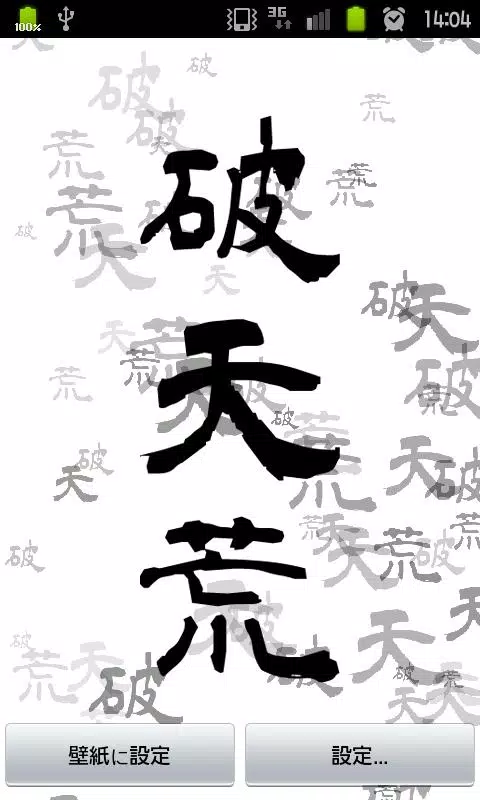 100%
3G
14:04
破
天
荒
壁紙に設定
設定...